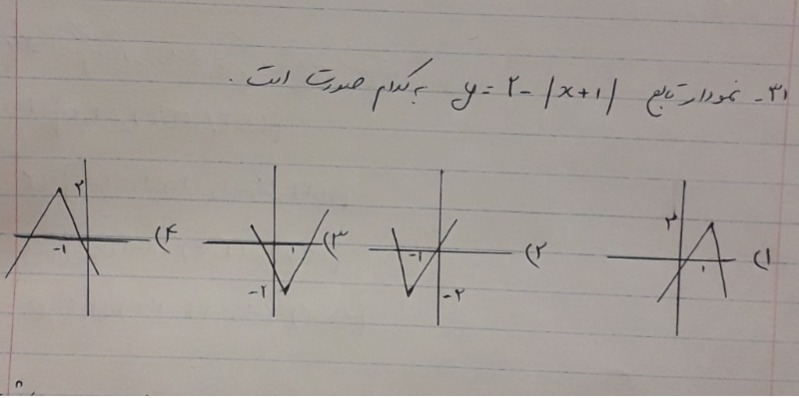 ۳۱- نمودار تابع y = ۲ - |x+۱| به کدام صورت است.
۱) ۲ ۱
۲) -۱ -۲
۳) ۱ -۲
۴) ۲ -۱